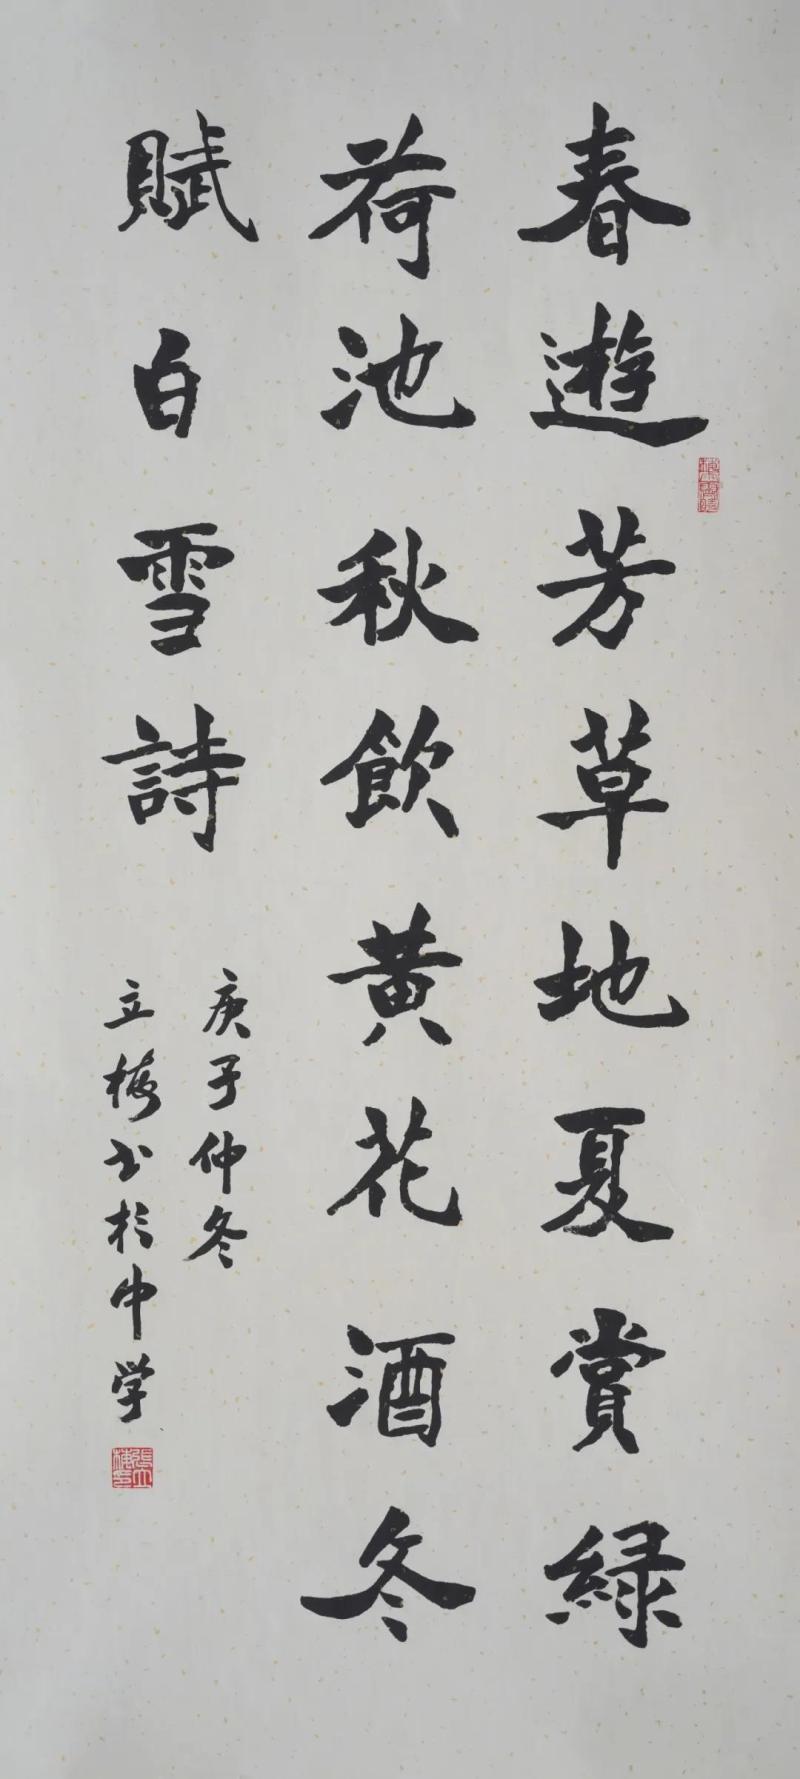 春遊芳草地夏賞緑
荷池秋飲黄花酒冬
賦白雪詩
庚子仲冬
立梅书於中学